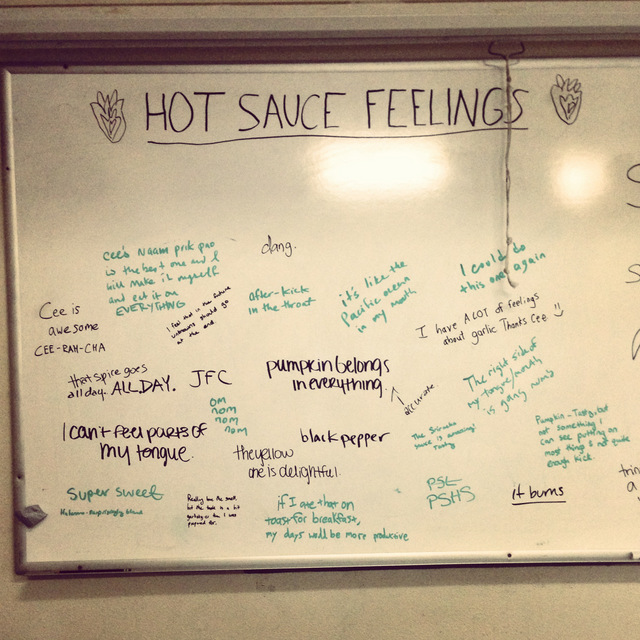 HOT SAUCE FEELINGS
dang.
Cee's Naam prik pao
is the best one and I
will make it myself
and eat it on
EVERYTHING
I feel that in the future
unknowns should go
at the end.
after-kick
in the throat
it's like the
Pacific ocean
in my mouth
I could do
this one again
Cee is
awesome
CEE-RAH-CHA
I have A LOT of feelings
about garlic Thanks Cee
that spice goes
all day. ALL DAY.
JFC
pumpkin belongs
in everything.
accurate.
The right side of
my tongue/mouth
is going numb
om
nom
nom
nom
I can't feel parts of
my tongue.
the yellow
one is delightful.
black pepper
The Sriracha
sauce is amazing!
Tasty
Pumpkin - Tasty, but
not something I
can see putting on
most things & not quite
enough kick.
Super sweet
Really love the smell
but the taste is a bit
than I was
prepared for.
if I ate that on
toast for breakfast,
my days would be more productive
PSL
PSHS
it burns